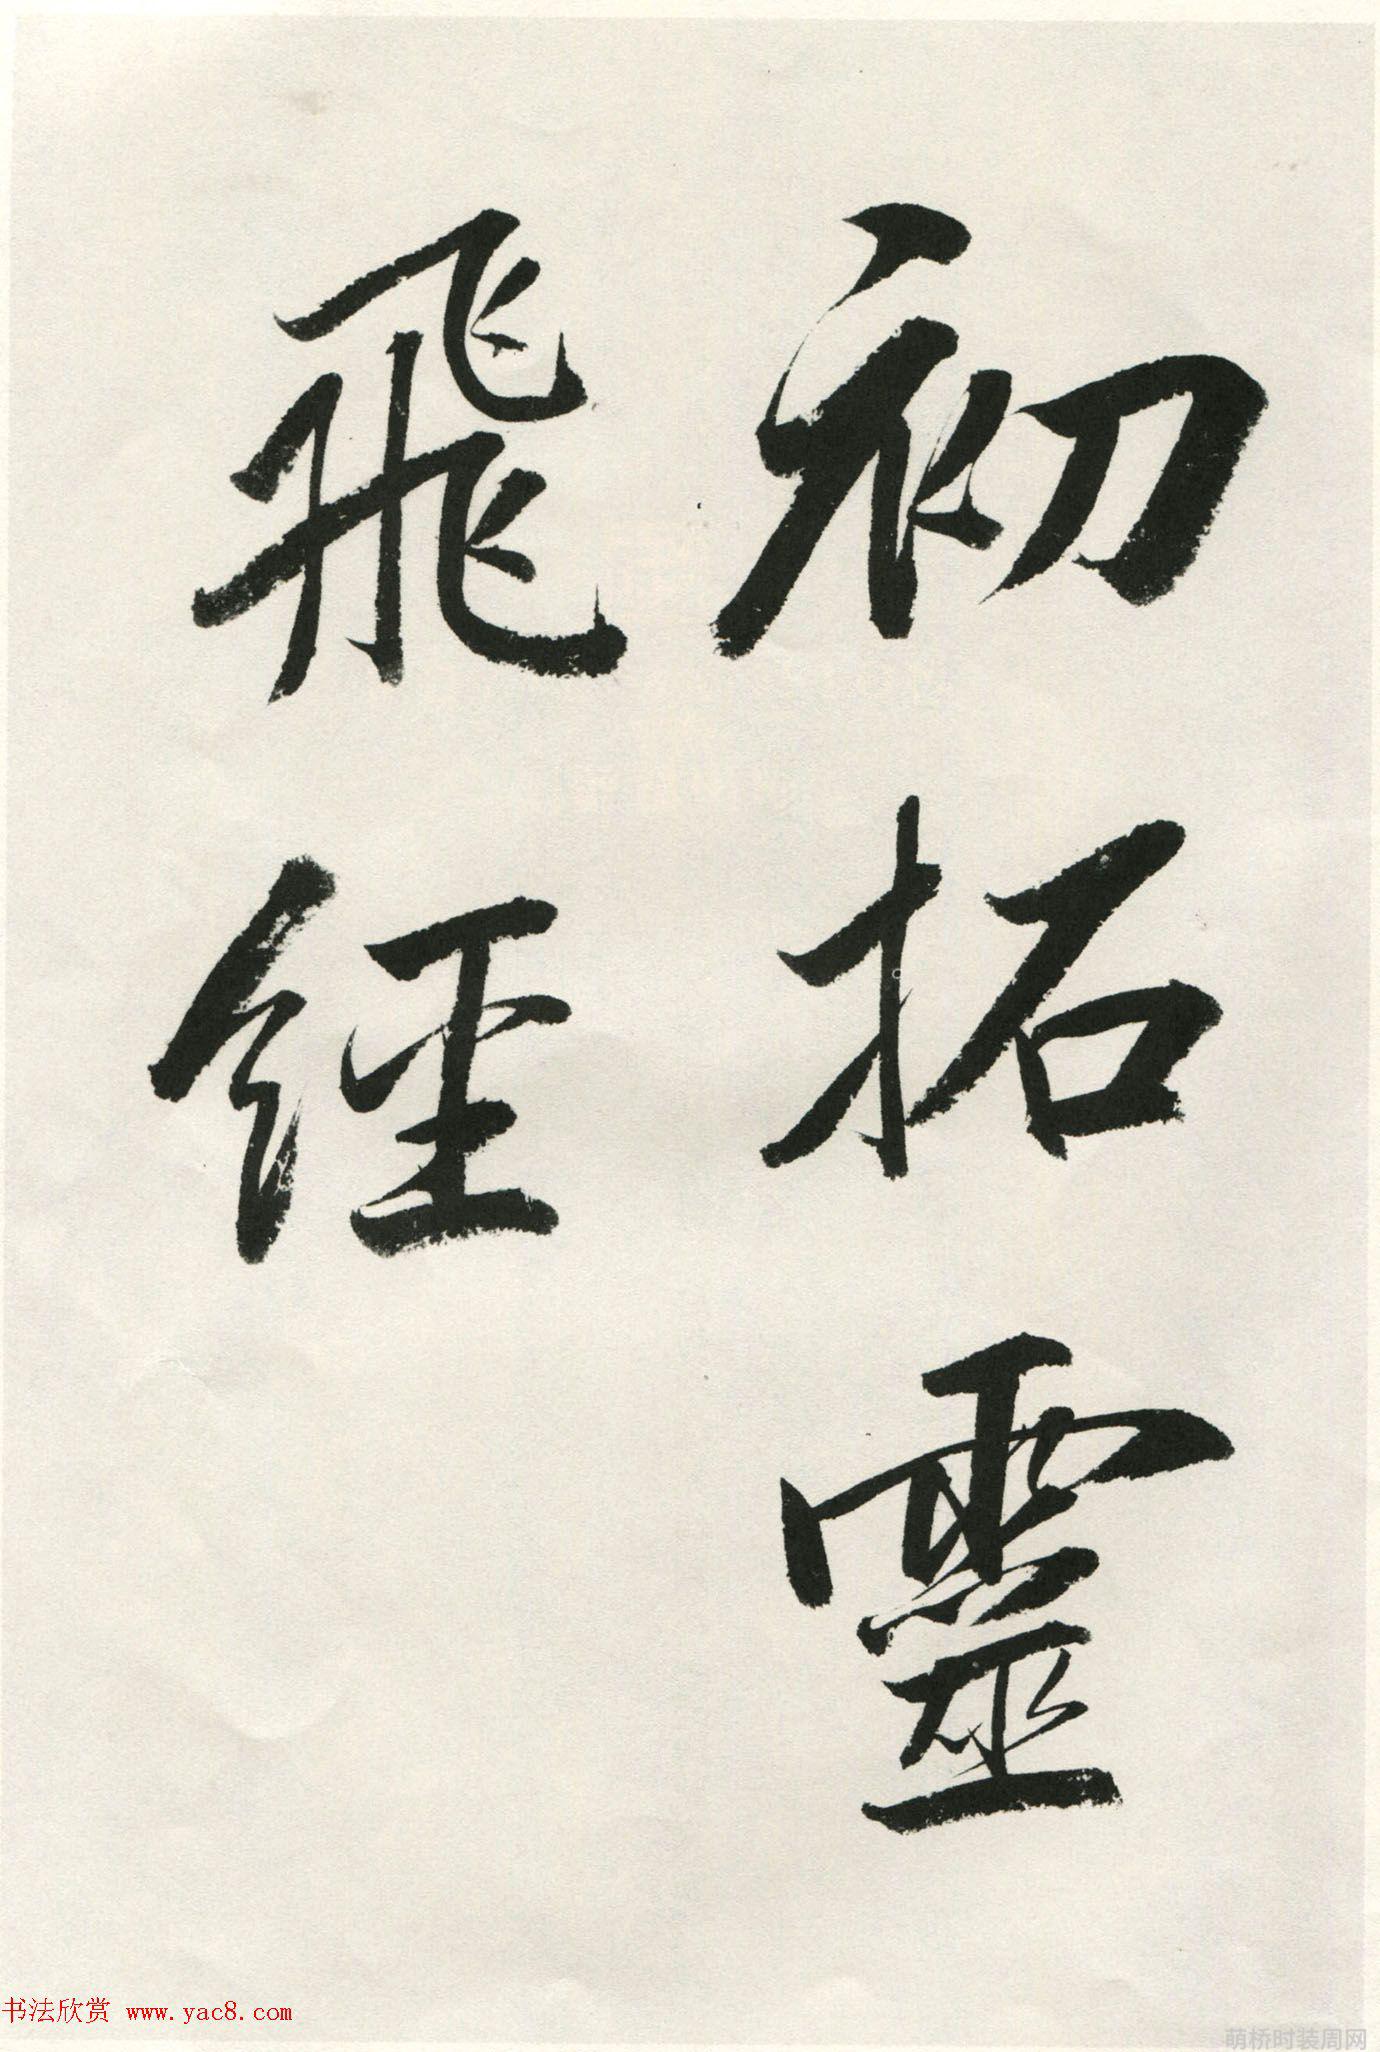 初拓靈
飛經
书法欣赏 www.yac8.com
萌桥时装周网